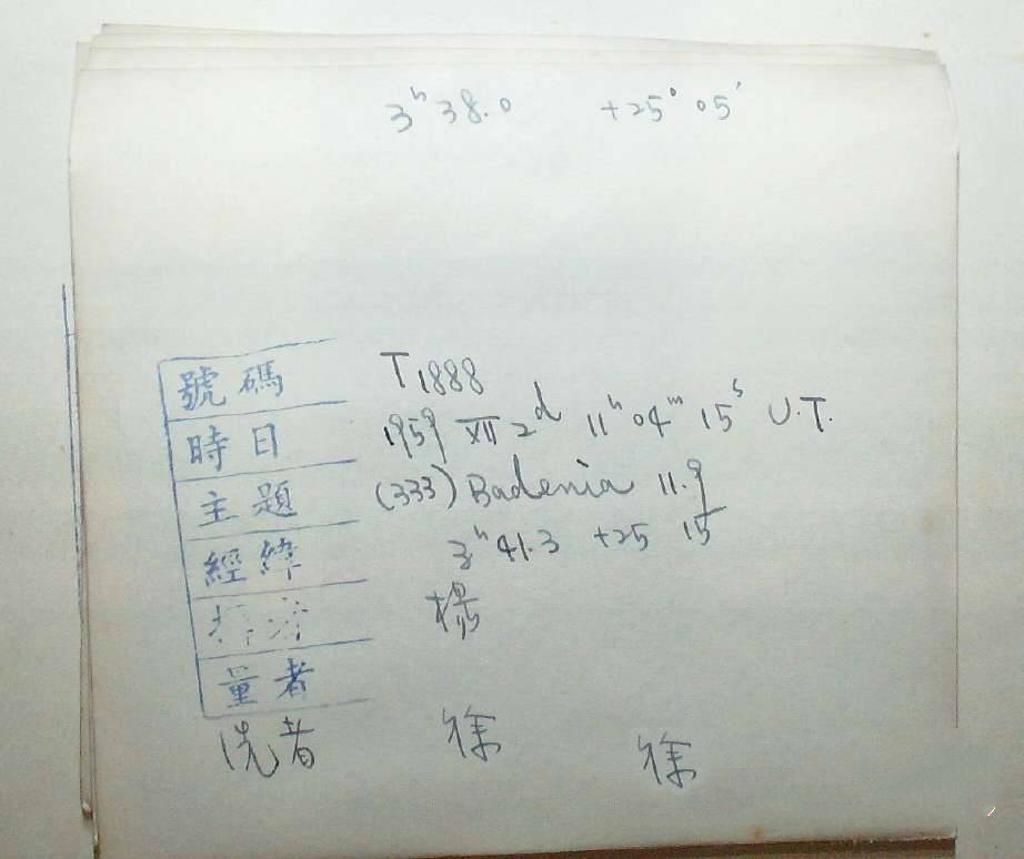 3ʰ 38.0 +25° 05′
號碼 T1888
時日 1959 XII 2ᵈ 11ʰ 04ᵐ 15ˢ U.T.
主題 (333) Badenia 11.9
經緯 3ʰ 41.3 +25 15
楊
量者
洗者 徐 徐